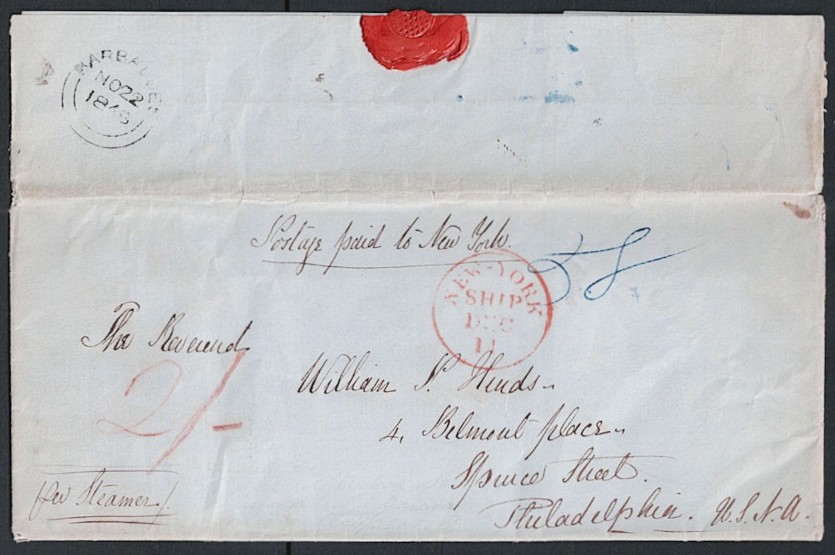 BARBADOES
NO 22
1848
Postage paid to New York.
58
NEW-YORK
SHIP
DEC
11
The Reverend
William P. Hinds
2/-
4, Belmont place
Spruce Street.
(per Steamer).
Philadelphia. U.S.N.A.